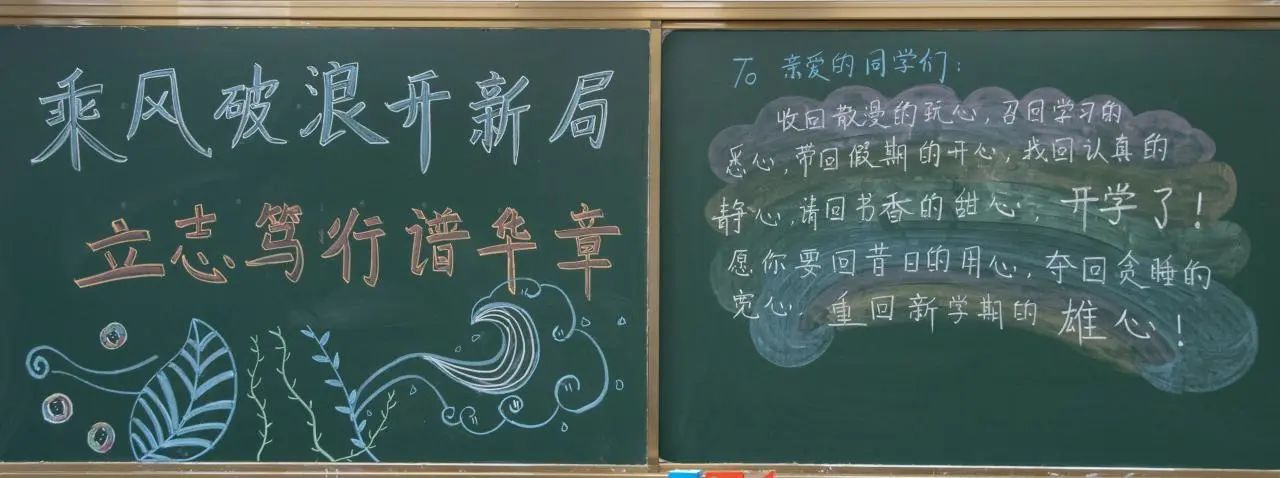 乘风破浪开新局
立志笃行谱华章
To 亲爱的同学们：
收回散漫的玩心，召回学习的
悉心，带回假期的开心，找回认真的
静心，请回书香的甜心，开学了！
愿你要回昔日的用心，夺回贪睡的
宽心，重回新学期的雄心！